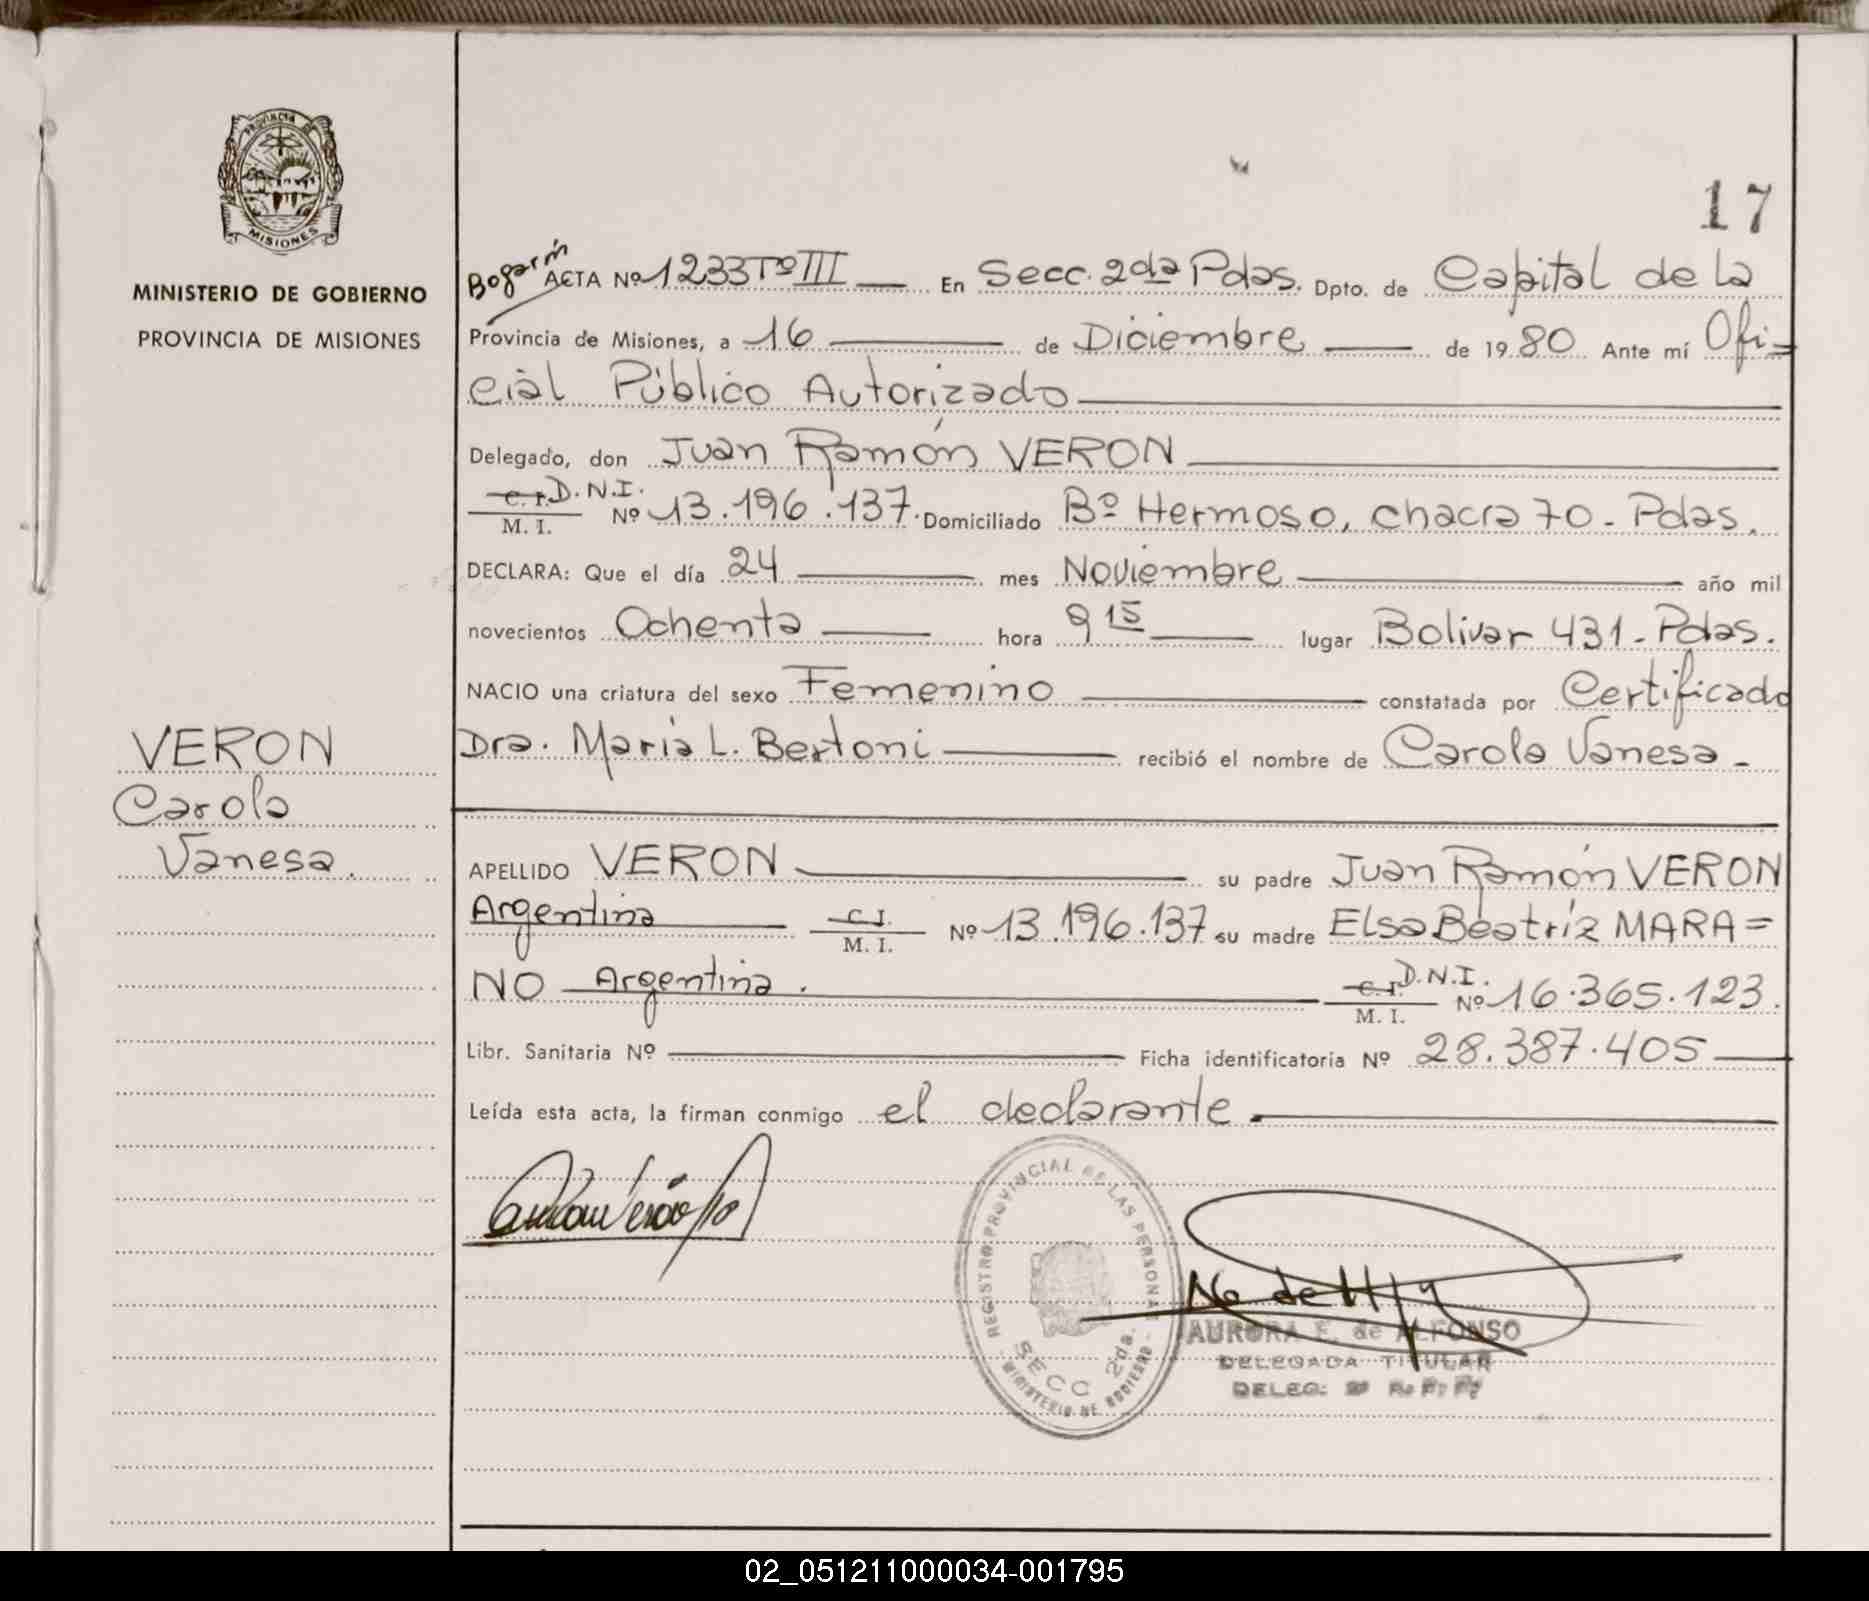 PROVINCIA DE
MISIONES
MINISTERIO DE GOBIERNO
PROVINCIA DE MISIONES
VERON
Carola
Vanesa.
17
Bogarin
ACTA Nº 1233 Tº III — En Secc. 2da Pdas. Dpto. de Capital de la
Provincia de Misiones, a 16 — de Diciembre — de 1980 Ante mí Ofi=
cial Público Autorizado —
Delegado, don Juan Ramón VERON —
C. I. D.N.I.
M. I. Nº 13.196.137. Domiciliado Bº Hermoso, chacra 70 - Pdas.
DECLARA: Que el día 24 — mes Noviembre — año mil
novecientos Ochenta — hora 9 15 — lugar Bolivar 431 - Pdas.
NACIO una criatura del sexo Femenino — constatada por Certificado
Dra. Maria L. Bertoni — recibió el nombre de Carola Vanesa -
APELLIDO VERON — su padre Juan Ramón VERON
Argentina — C I. M. I. Nº 13.196.137 su madre Elsa Beatríz MARA=
NO — Argentina. — C. I. D.N.I. M. I. Nº 16.365.123.
Libr. Sanitaria Nº — Ficha identificatoria Nº 28.387.405 —
Leída esta acta, la firman conmigo el declarante. —
REGISTRO PROVINCIAL DE LAS PERSONAS
SECC 2da.
MINISTERIO DE GOBIERNO
AURORA E. de ALFONSO
DELEGADA TITULAR
DELEG:
02_051211000034-001795